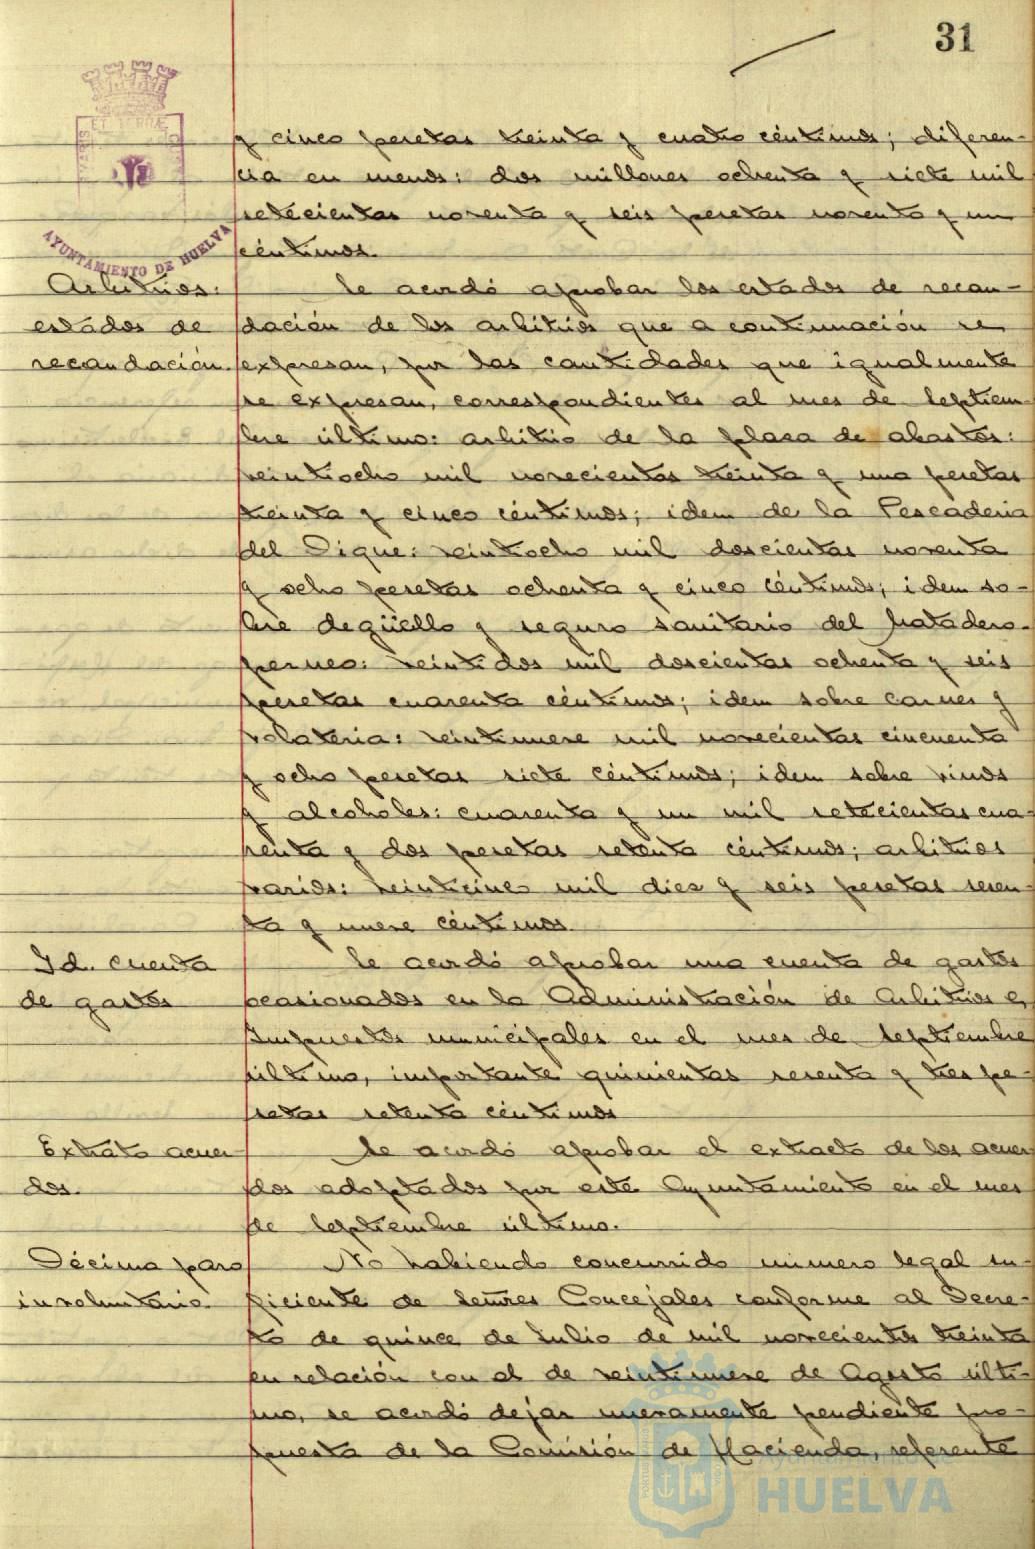 31
y cinco pesetas treinta y cuatro céntimos; diferen-
cia en menos: dos millones ochenta y siete mil
setecientas noventa y seis pesetas noventa y un
céntimos.
AYUNTAMIENTO DE HUELVA
Arbitrios:
estados de
recaudación.
Se acordó aprobar los estados de recau-
dación de los arbitrios que a continuación se
expresan, por las cantidades que igualmente
se expresan, correspondientes al mes de Septiem-
bre último: arbitrio de la plaza de abastos:
veintiocho mil novecientas treinta y una pesetas
treinta y cinco céntimos; idem de la Pescaderia
del Dique: veintiocho mil doscientas noventa
y ocho pesetas ochenta y cinco céntimos; idem so-
bre degüello y seguro sanitario del Matadero-
perneo: veintidos mil doscientas ochenta y seis
pesetas cuarenta céntimos; idem sobre carnes y
volateria: veintinueve mil novecientas cincuenta
y ocho pesetas siete céntimos; idem sobre vinos
y alcoholes: cuarenta y un mil setecientas cua-
renta y dos pesetas setenta céntimos; arbitrios
varios: veinticinco mil diez y seis pesetas sesen-
ta y nueve céntimos.
Id. cuenta
de gastos
Se acordó aprobar una cuenta de gastos
ocasionados en la Administración de Arbitrios e
Impuestos municipales en el mes de Septiembre
último, importante quinientas sesenta y tres pe-
setas setenta céntimos
Extrato acuer-
dos.
Se acordó aprobar el extracto de los acuer
dos adoptados por este Ayuntamiento en el mes
de Septiembre último.
Décima paro
involuntario.
No habiendo concurrido número legal su-
ficiente de Señores Concejales conforme al Decre-
to de quince de Julio de mil novecientos treinta
en relación con el de veintinueve de Agosto últi-
mo, se acordó dejar nuevamente pendiente pro-
puesta de la Comisión de Hacienda, referente
Ayuntamiento de
HUELVA